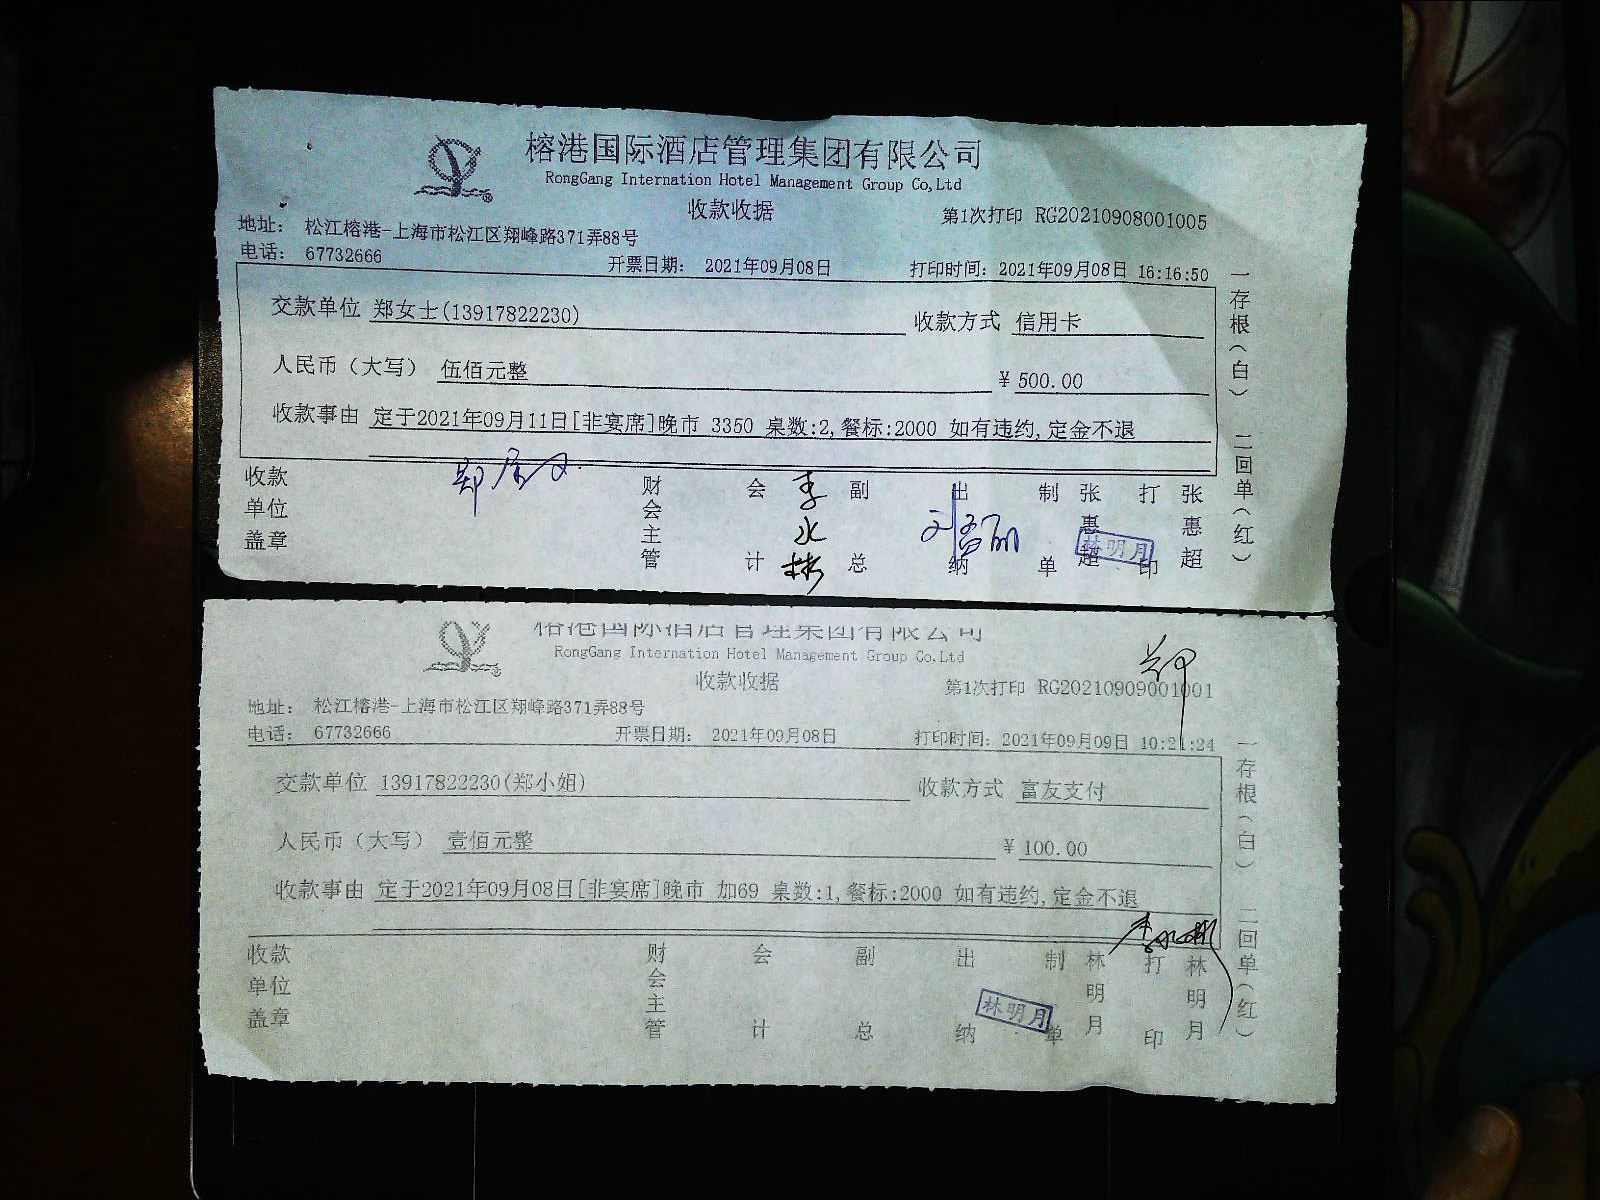 榕港国际酒店管理集团有限公司
RongGang Internation Hotel Management Group Co,Ltd
收款收据
第1次打印 RG20210908001005
地址： 松江榕港-上海市松江区翔峰路371弄88号
电话： 67732666
开票日期： 2021年09月08日
打印时间：2021年09月08日 16:16:50
交款单位 郑女士(13917822230)
收款方式 信用卡
人民币（大写） 伍佰元整
￥500.00
收款事由 定于2021年09月11日[非宴席]晚市 3350 桌数:2,餐标:2000 如有违约,定金不退
一存根（白） 二回单（红）
收款单位盖章
财会主管
会计
李水彬
副总
出纳
制单
张惠超
打印
张惠超
林明月
榕港国际酒店管理集团有限公司
RongGang Internation Hotel Management Group Co,Ltd
收款收据
郑
第1次打印 RG20210909001001
地址： 松江榕港-上海市松江区翔峰路371弄88号
电话： 67732666
开票日期： 2021年09月08日
打印时间：2021年09月09日 10:21:24
交款单位 13917822230(郑小姐)
收款方式 富友支付
人民币（大写） 壹佰元整
￥100.00
收款事由 定于2021年09月08日[非宴席]晚市 加69 桌数:1,餐标:2000 如有违约,定金不退
一存根（白） 二回单（红）
李水彬
收款单位盖章
财会主管
会计
副总
出纳
制单
林明月
打印
林明月
林明月